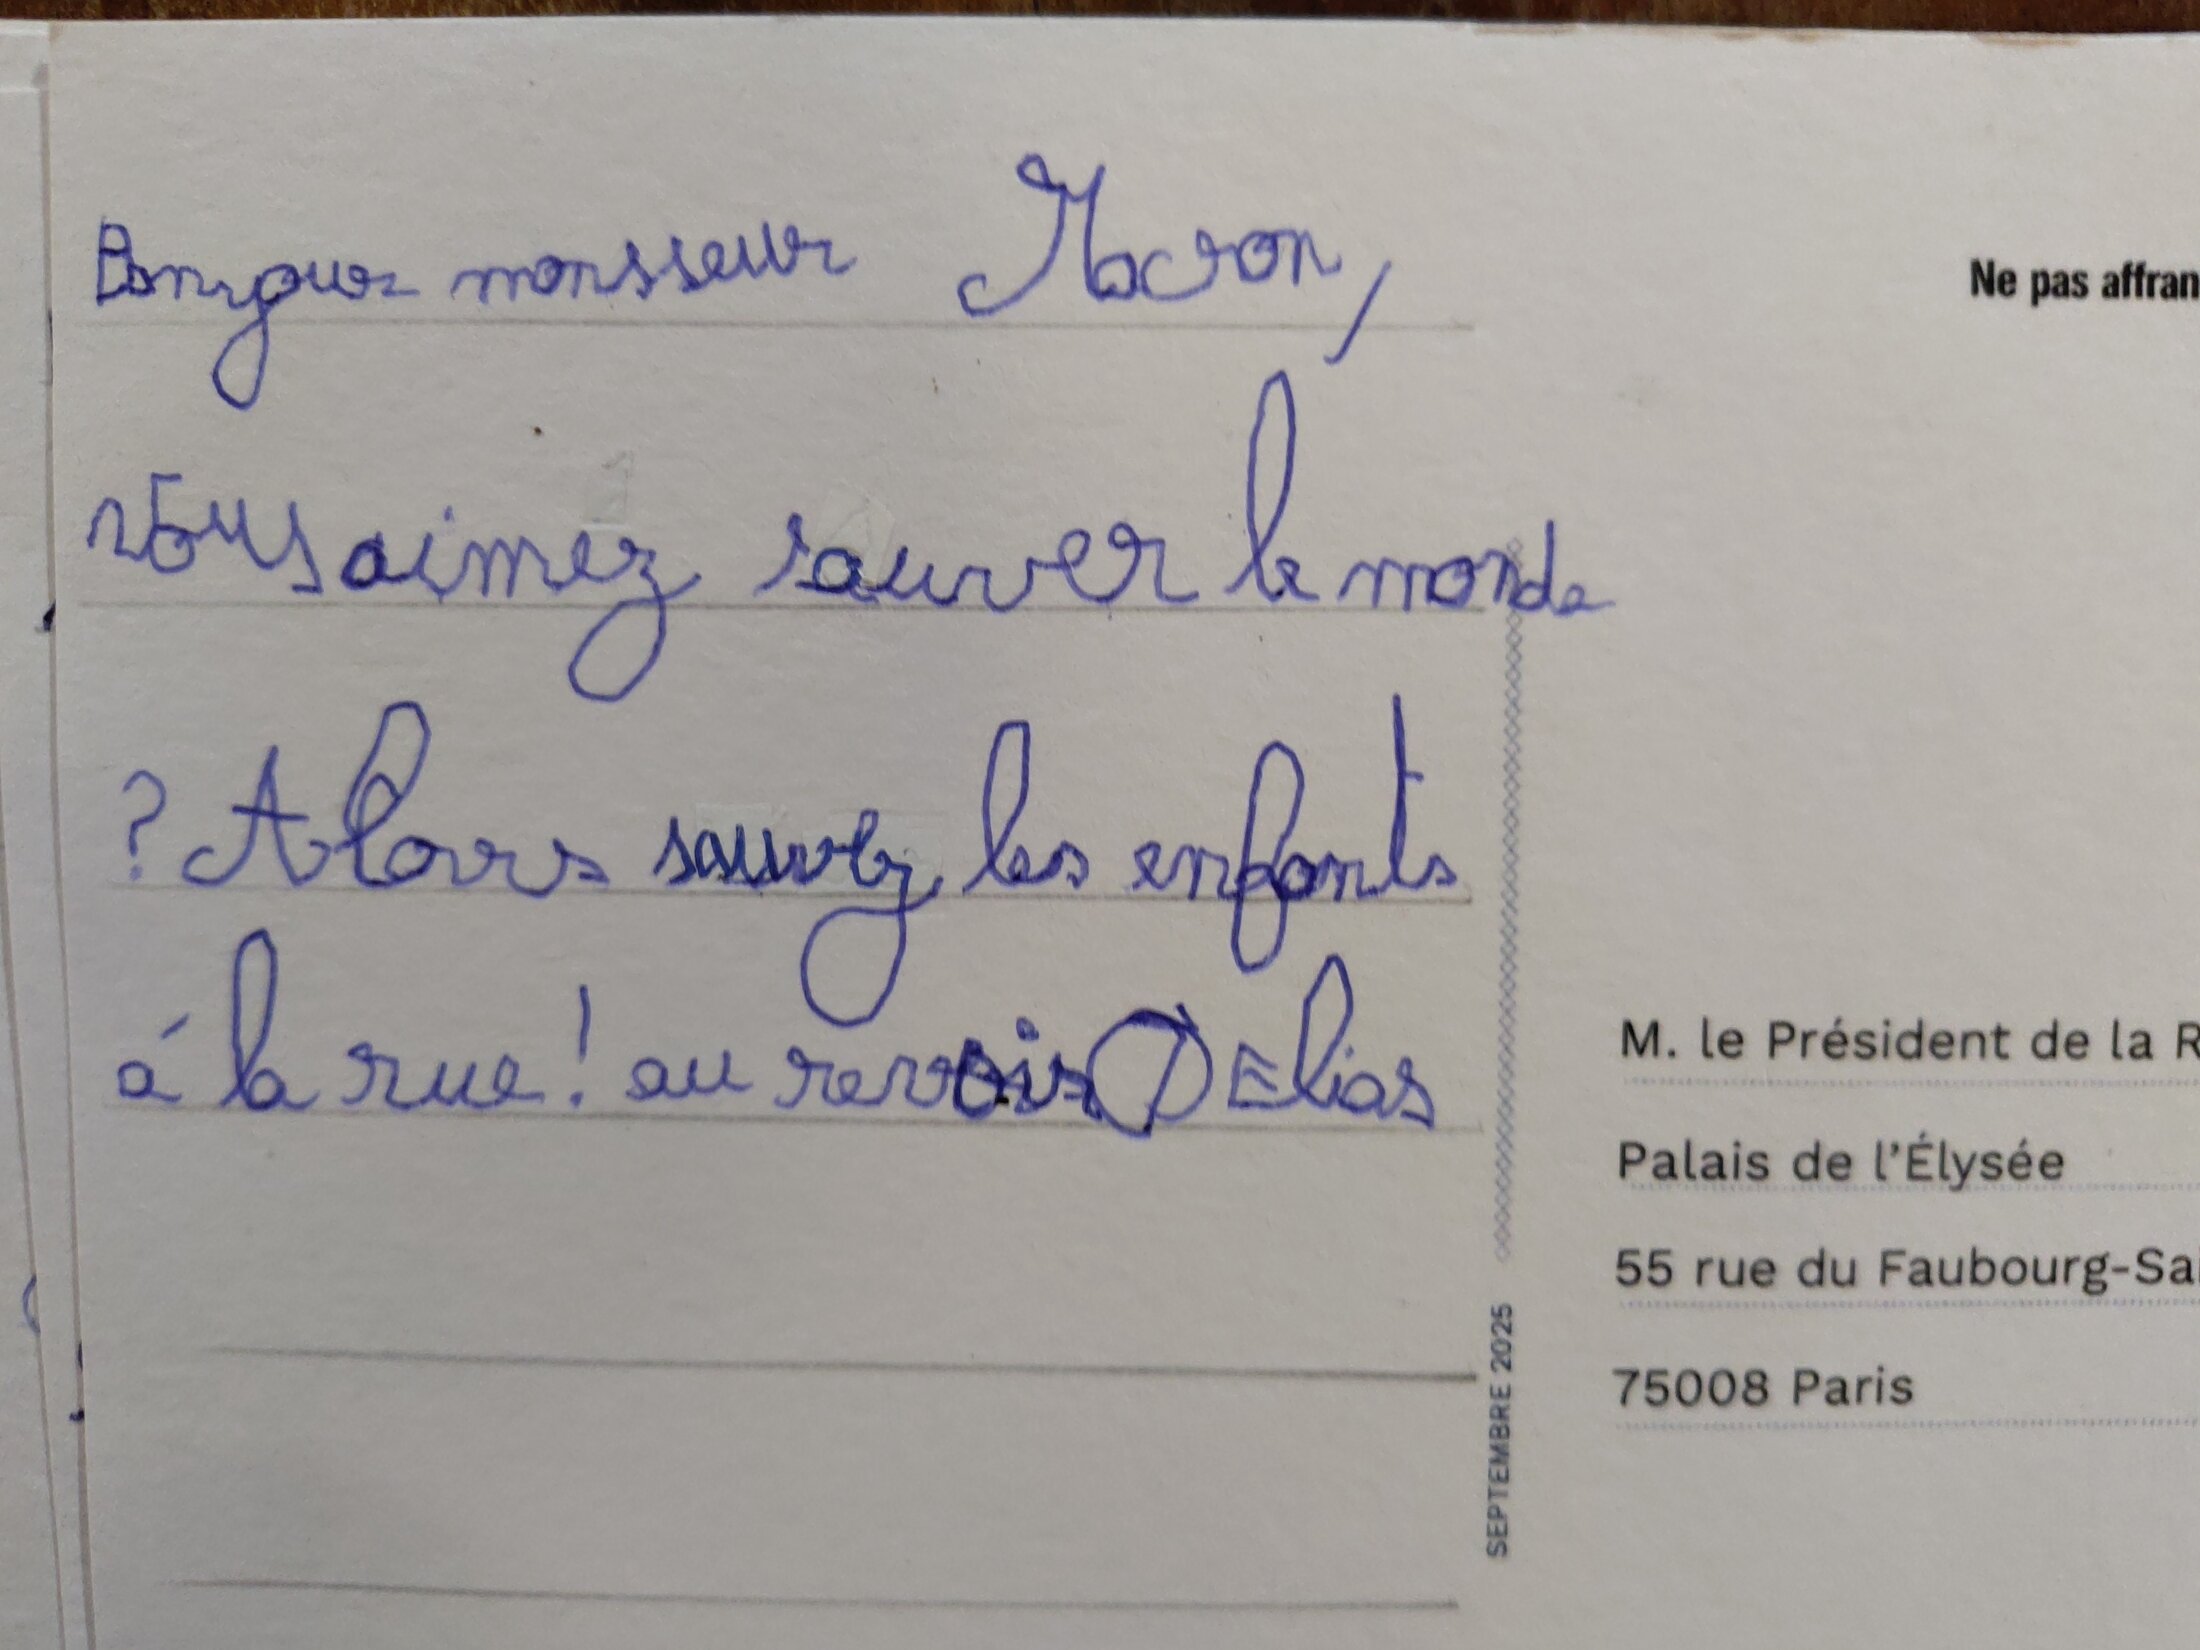 Bonjour monsseur Macron,
vous aimez sauver le monde
? Alors sauvez les enfants
á la rue ! au revoir Elias
Ne pas affran
M. le Président de la R
Palais de l'Élysée
55 rue du Faubourg-Sai
75008 Paris
SEPTEMBRE 2025